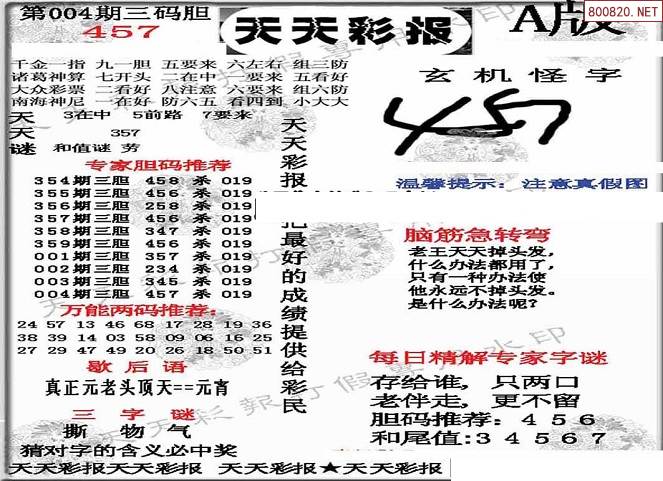 第004期三码胆
457
天天彩报
A版
800820.NET
千金一指 九一胆 五要来 六左右 组三防
诸葛神算 七开头 二在中 二要来 五看好
大众彩票 二看好 八注意 六要来 组六防
南海神尼 一在好 防六五 看四到 小大大
天 3在中 5前路 7要来
天 357
谜 和值谜 劳
专家胆码推荐
354期三胆 458 杀 019
355期三胆 456 杀 019
356期三胆 258 杀 019
357期三胆 456 杀 019
358期三胆 347 杀 019
359期三胆 456 杀 019
001期三胆 357 杀 019
002期三胆 234 杀 019
003期三胆 345 杀 019
004期三胆 457 杀 019
万能两码推荐:
24 57 13 46 68 17 28 19 36
38 39 14 03 58 09 06 16 25
27 29 47 49 20 26 18 50 51
歇后语
真正元老头顶天==元宵
三字谜
撕 物 气
猜对字的含义必中奖
天天彩报
把最好的成绩提供给彩民
玄机怪字
457
温馨提示: 注意真假图
脑筋急转弯
老王天天掉头发,
什么办法都用了,
只有一种办法使
他永远不掉头发。
是什么办法呢?
每日精解专家字谜
存给谁, 只两口
老伴走, 更不留
胆码推荐: 4 5 6
和尾值:3 4 5 6 7
天天彩报天天彩报 天天彩报★天天彩报